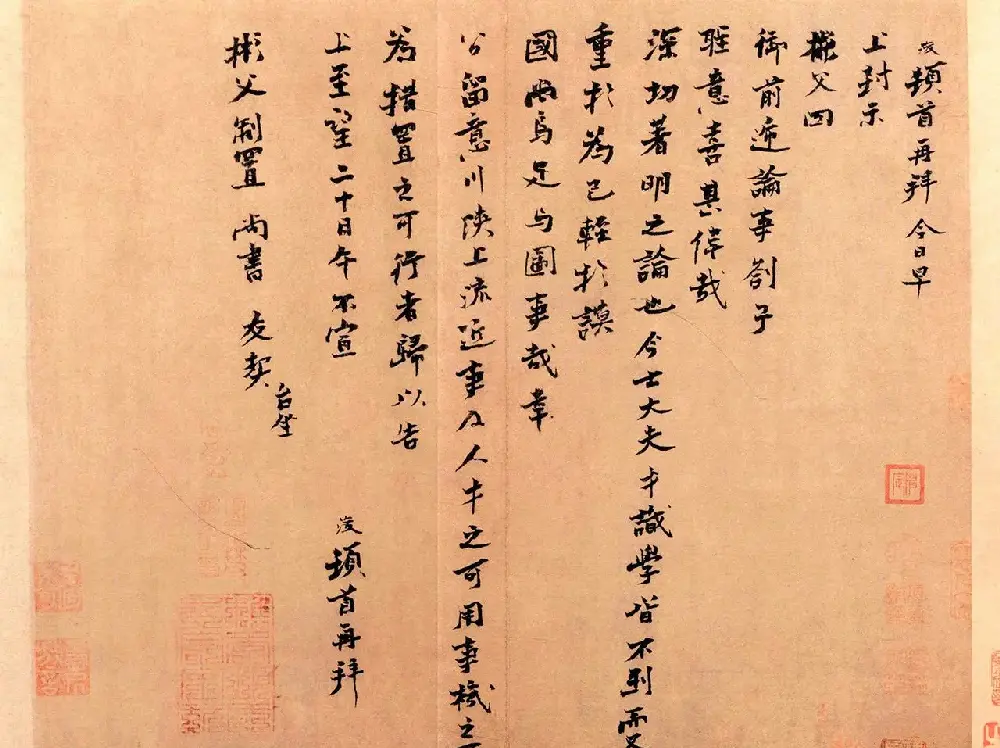 浚頓首再拜 今日早
上封示
父回
御前近論事劄子
聖意喜甚偉哉
深切著明之論也今士大夫才識學皆不到而又
重於為己輕於謨
國焉足与圖事哉幸
公留意川陝上流近事及人才之可用事機之可
為措置之可行者歸以告
上至望二十日午不宣 浚頓首再拜
彬父制置 尚書 友契 台坐